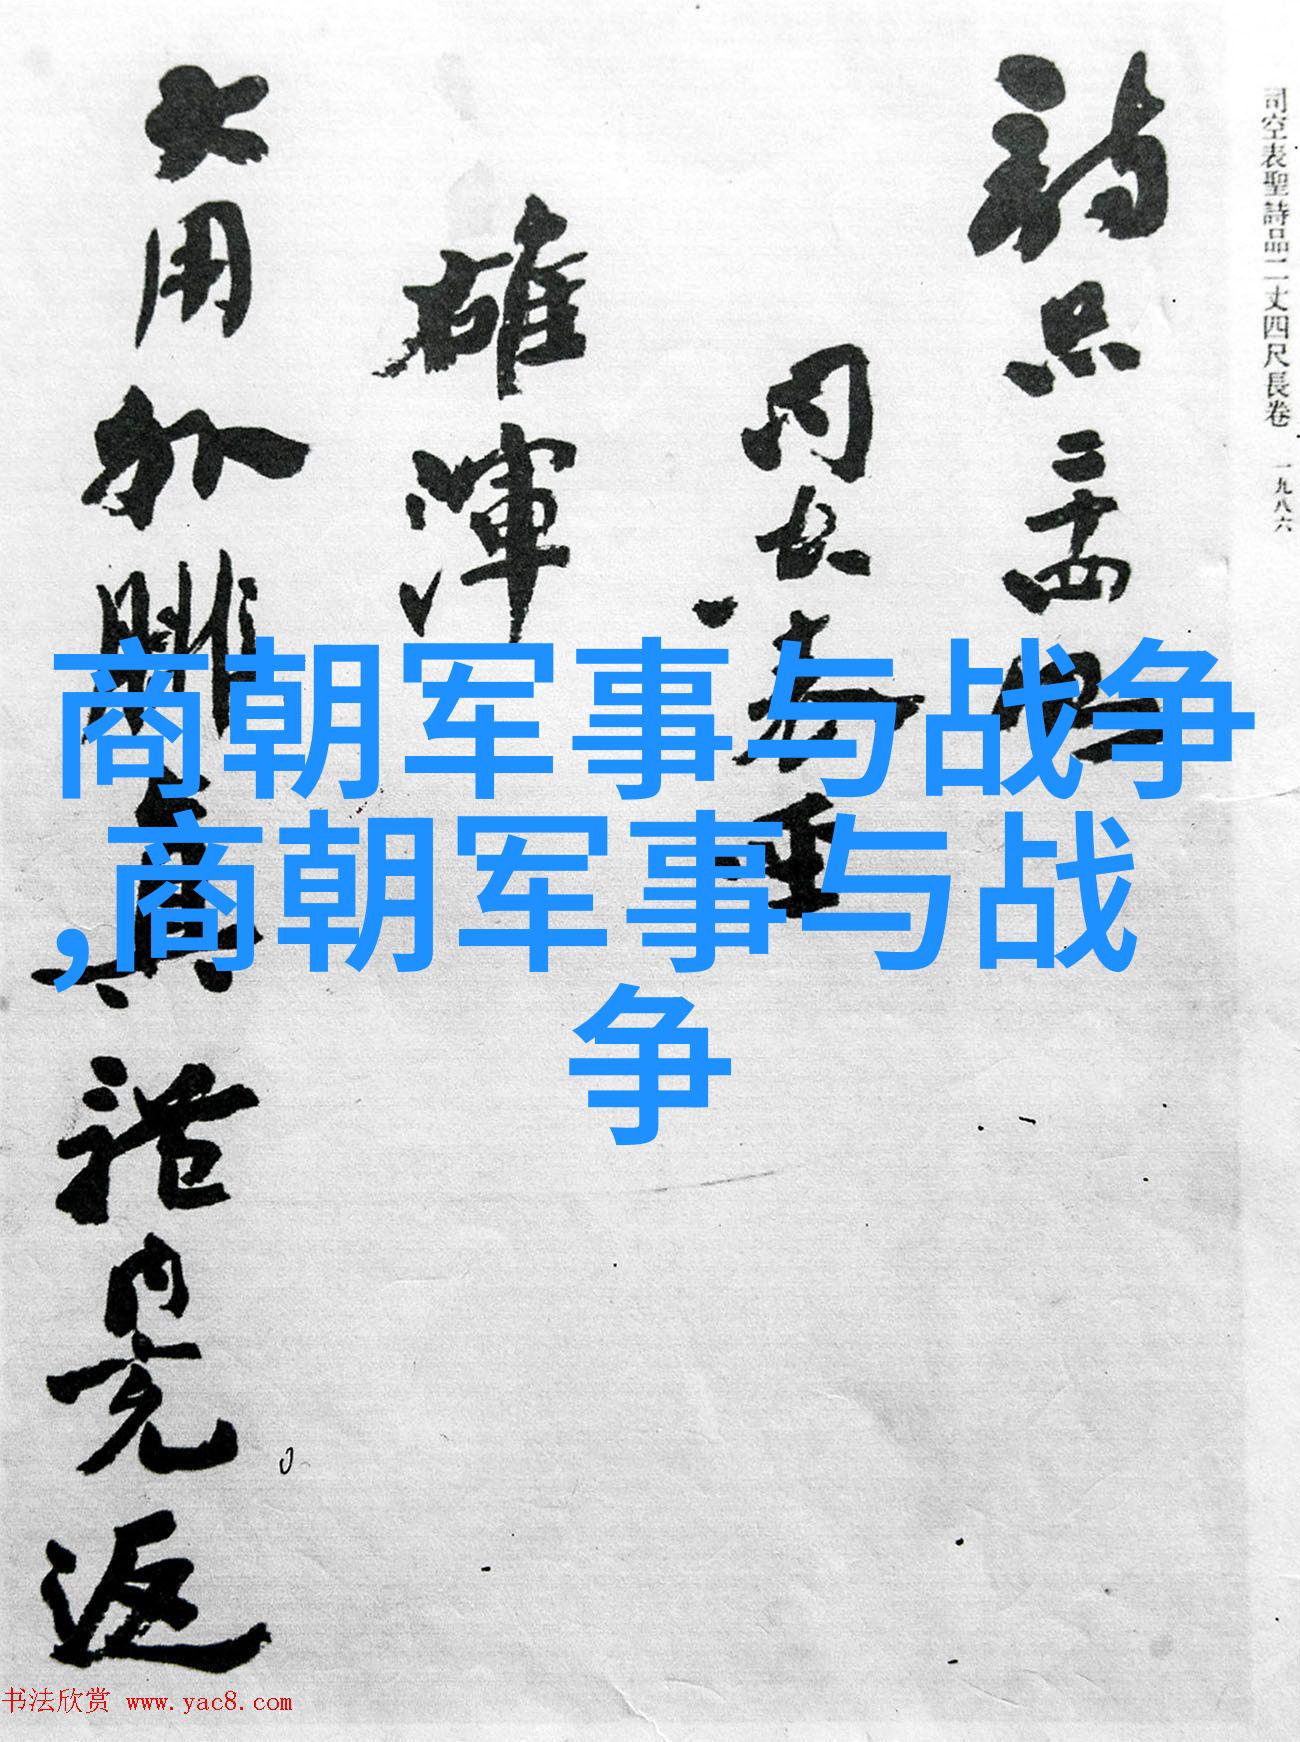 司空表聖詩品二丈四尺長卷 一九八六
詩品二十四則
雄渾
大用外腓真體內充返
商朝军事与战争
,商朝军事与战
争
书法欣赏 www.yac8.com